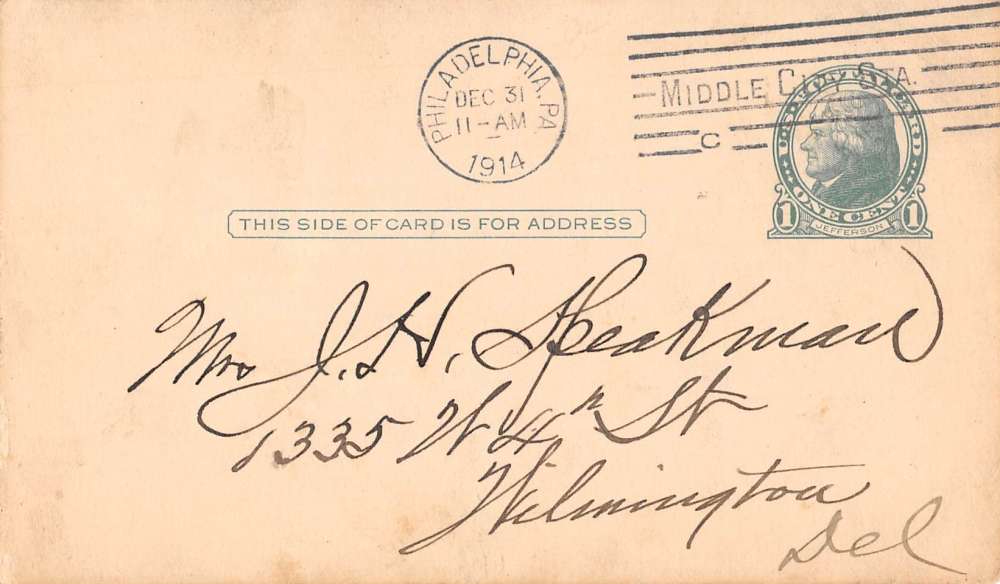 PHILADELPHIA, PA
DEC 31
11-AM
1914
MIDDLE CITY STA.
C
U.S. POSTAL CARD
1 ONE CENT 1
JEFFERSON
THIS SIDE OF CARD IS FOR ADDRESS
Mrs J. H. Speakman
1335 W 4th St
Wilmington
Del